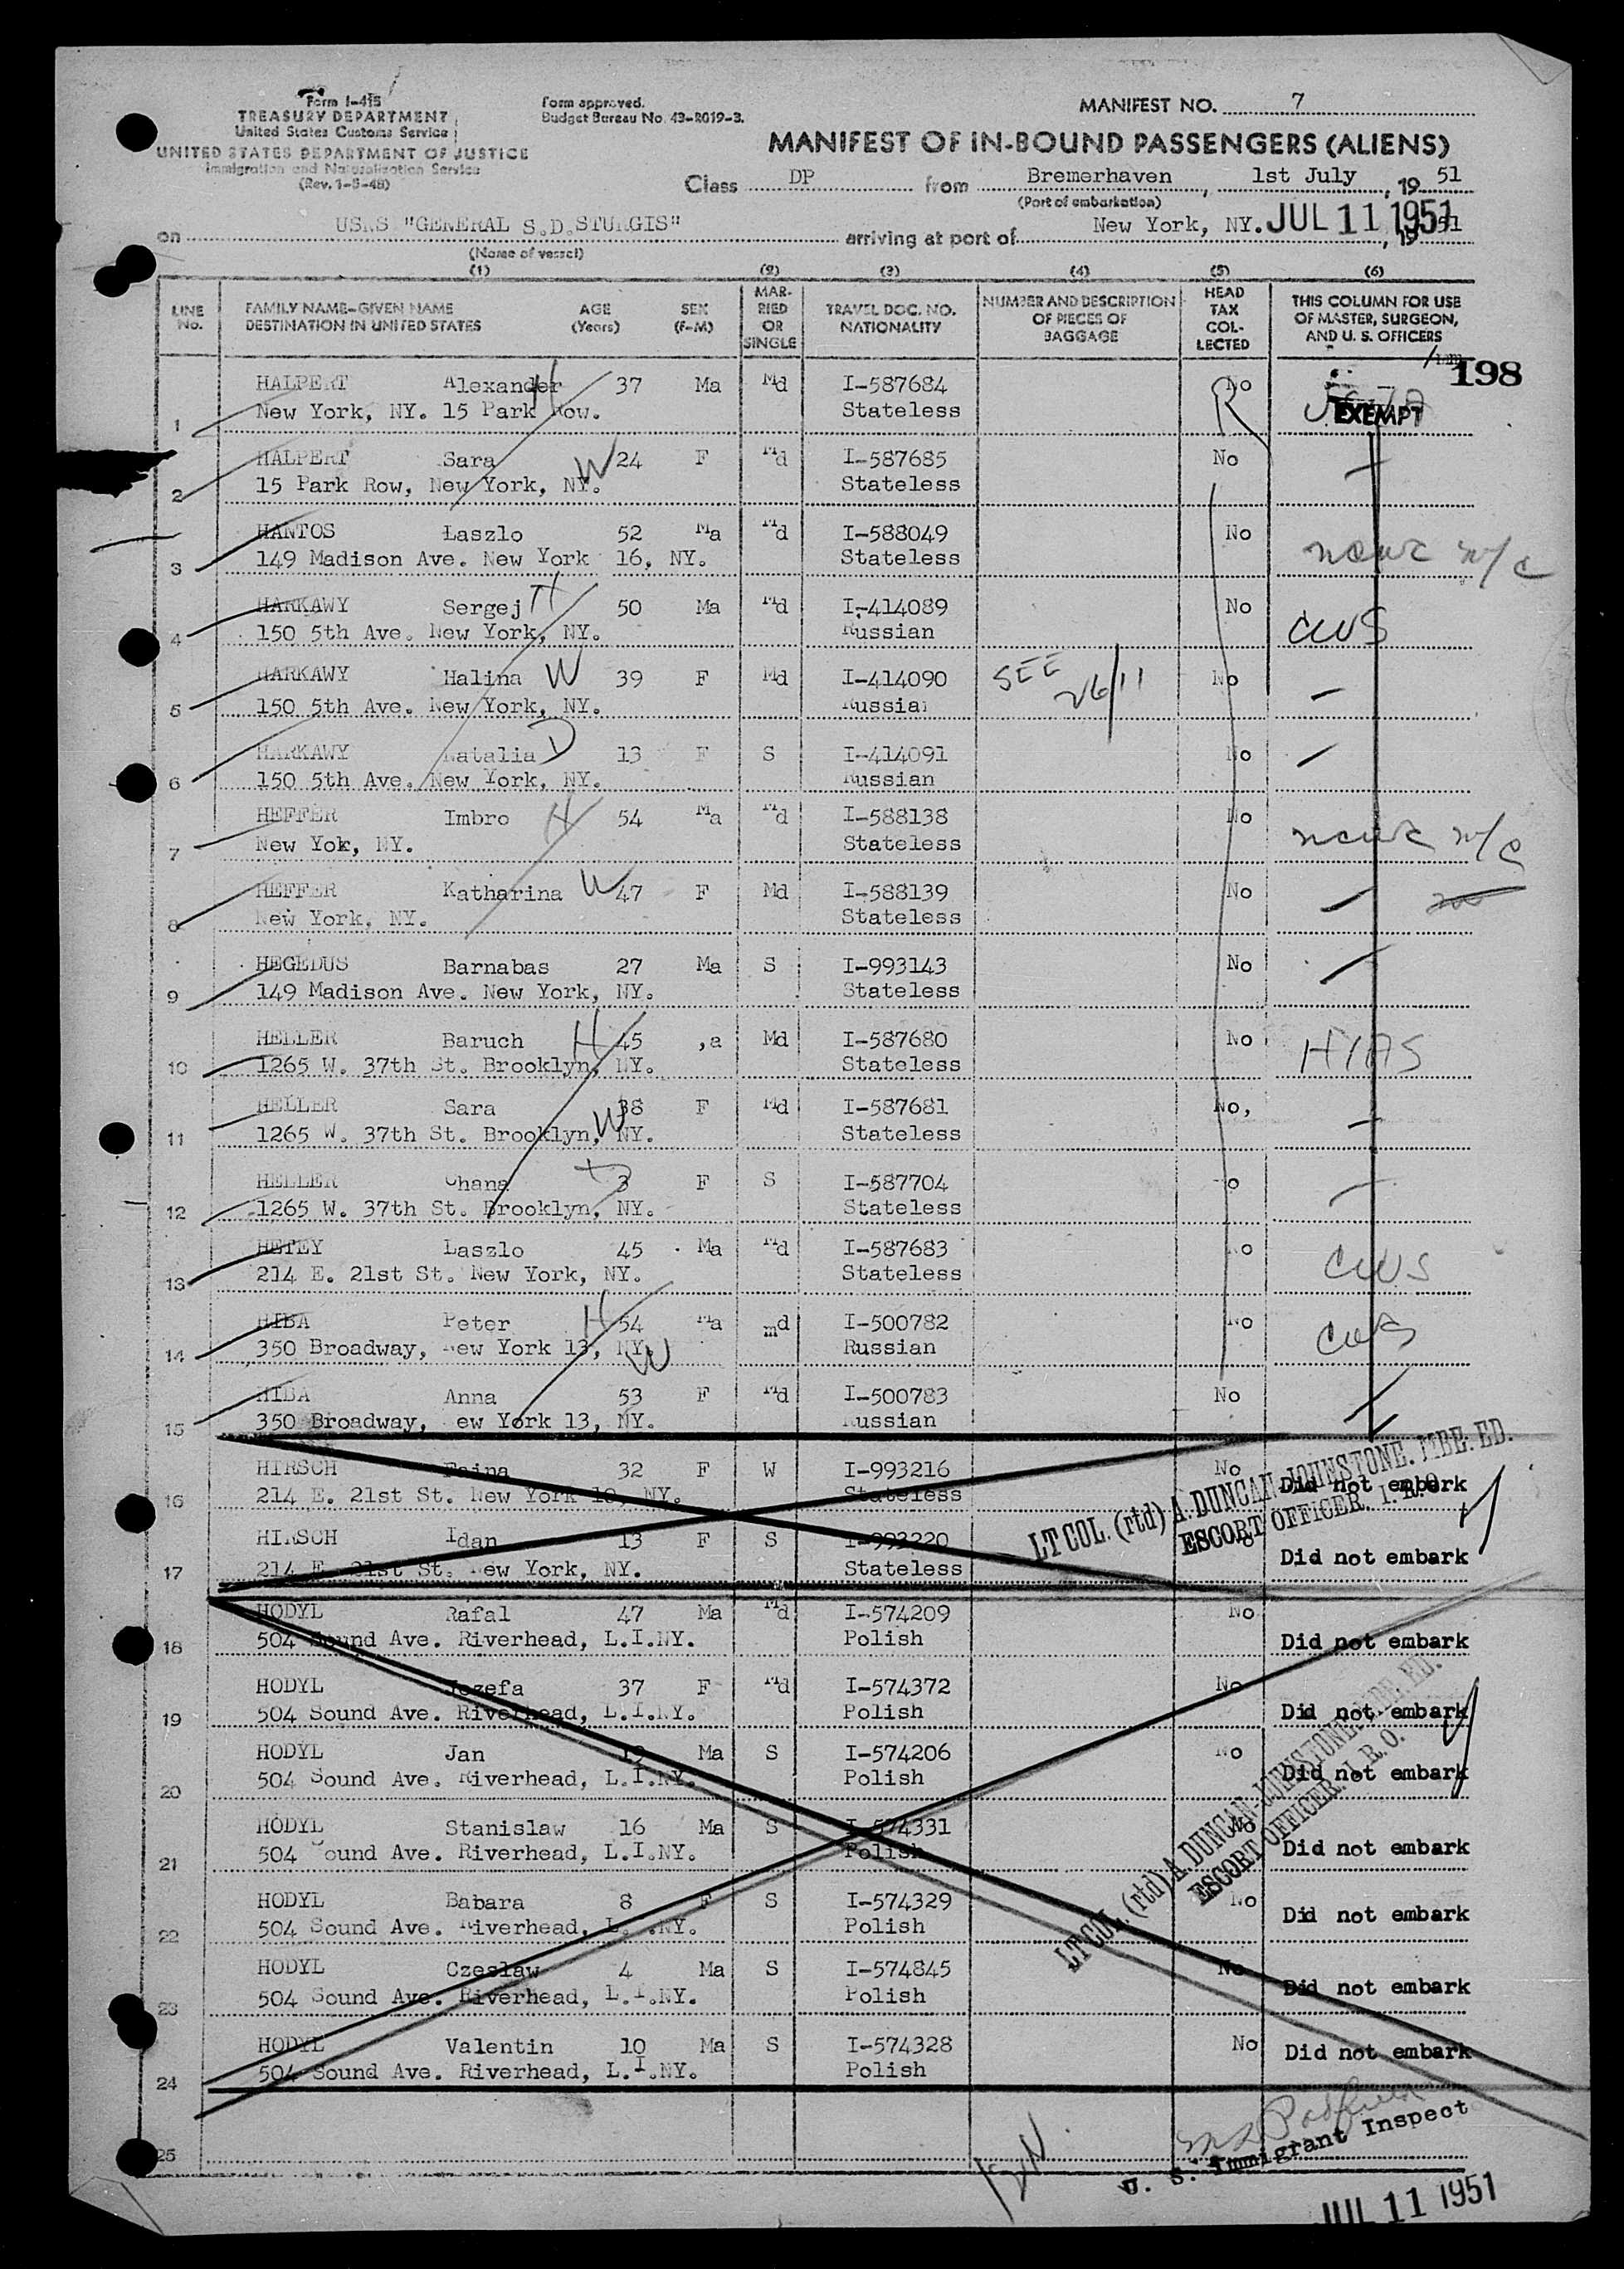 Form I-415
TREASURY DEPARTMENT
United States Customs Service
UNITED STATES DEPARTMENT OF JUSTICE
Immigration and Naturalization Service
(Rev. 1-5-48)
Form approved.
Budget Bureau No. 43-R019-3.
MANIFEST NO. 7
MANIFEST OF IN-BOUND PASSENGERS (ALIENS)
Class DP from Bremerhaven, 1st July, 19 51
(Port of embarkation)
on USNS "GENERAL S.D.STURGIS" arriving at port of New York, NY. JUL 11 1951, 19 51
(Name of vessel)
(1) (2) (3) (4) (5) (6)
LINE No. FAMILY NAME-GIVEN NAME DESTINATION IN UNITED STATES AGE (Years) SEX (F-M) MARRIED OR SINGLE TRAVEL DOC. NO. NATIONALITY NUMBER AND DESCRIPTION OF PIECES OF BAGGAGE HEAD TAX COLLECTED THIS COLUMN FOR USE OF MASTER, SURGEON, AND U. S. OFFICERS
198
HALPERT Alexander H 37 Ma Md I-587684 No
1 New York, NY. 15 Park Row. Stateless R EXEMPT
HALPERT Sara W 24 F Md I-587685 No
2 15 Park Row, New York, NY. Stateless
HANTOS Laszlo 52 Ma Md I-588049 No
3 149 Madison Ave. New York 16, NY. Stateless ncwc w/c
HARKAWY Sergej H 50 Ma Md I-414089 No
4 150 5th Ave. New York, NY. Russian CWS
HARKAWY Halina W 39 F Md I-414090 SEE 26/11 No
5 150 5th Ave. New York, NY. Russian
HARKAWY Natalia D 13 F S I-414091 No
6 150 5th Ave. New York, NY. Russian
HEFFER Imbro H 54 Ma Md I-588138 No
7 New Yok, NY. Stateless ncwc w/c
HEFFER Katharina W 47 F Md I-588139 No
8 New York. NY. Stateless
HEGEDUS Barnabas 27 Ma S I-993143 No
9 149 Madison Ave. New York, NY. Stateless
HELLER Baruch H 45 ,a Md I-587680 No
10 1265 W. 37th St. Brooklyn, NY. Stateless HIAS
HELLER Sara 38 F Md I-587681 No,
11 1265 W. 37th St. Brooklyn, W NY. Stateless
HELLER Chana D 3 F S I-587704 No
12 1265 W. 37th St. Brooklyn, NY. Stateless
HETEY Laszlo 45 Ma Md I-587683 No
13 214 E. 21st St. New York, NY. Stateless CWS
HIBA Peter H 54 Ma md I-500782 No
14 350 Broadway, New York 13, NY. W Russian CWS
HIBA Anna 53 F Md I-500783 No
15 350 Broadway, ew York 13, NY. Russian
HIRSCH Faina 32 F W I-993216 No
16 214 E. 21st St. New York 10, NY. Stateless Did not embark
LT COL. (rtd) A. DUNCAN-JOHNSTONE. MBE. ED.
ESCORT OFFICER. I. R. O.
HIRSCH Idan 13 F S I-993220 No
17 214 E. 21st St. New York, NY. Stateless Did not embark
HODYL Rafal 47 Ma Md I-574209 No
18 504 Sound Ave. Riverhead, L.I.NY. Polish Did not embark
HODYL Jozefa 37 F Md I-574372 No
19 504 Sound Ave. Riverhead, L.I.NY. Polish Did not embark
HODYL Jan 19 Ma S I-574206 No
20 504 Sound Ave. Riverhead, L.I.NY. Polish Did not embark
HODYL Stanislaw 16 Ma S I-574331 No
21 504 Sound Ave. Riverhead, L.I.NY. Polish Did not embark
LT COL. (rtd) A. DUNCAN-JOHNSTONE. MBE. ED.
ESCORT OFFICER. I. R. O.
HODYL Babara 8 F S I-574329 No
22 504 Sound Ave. Riverhead, L. .NY. Polish Did not embark
HODYL Czeslaw 4 Ma S I-574845 No
23 504 Sound Ave. Riverhead, L.I.NY. Polish Did not embark
HODYL Valentin 10 Ma S I-574328 No
24 504 Sound Ave. Riverhead, L.I.NY. Polish Did not embark
25
U. S. Immigrant Inspect
JUL 11 1951